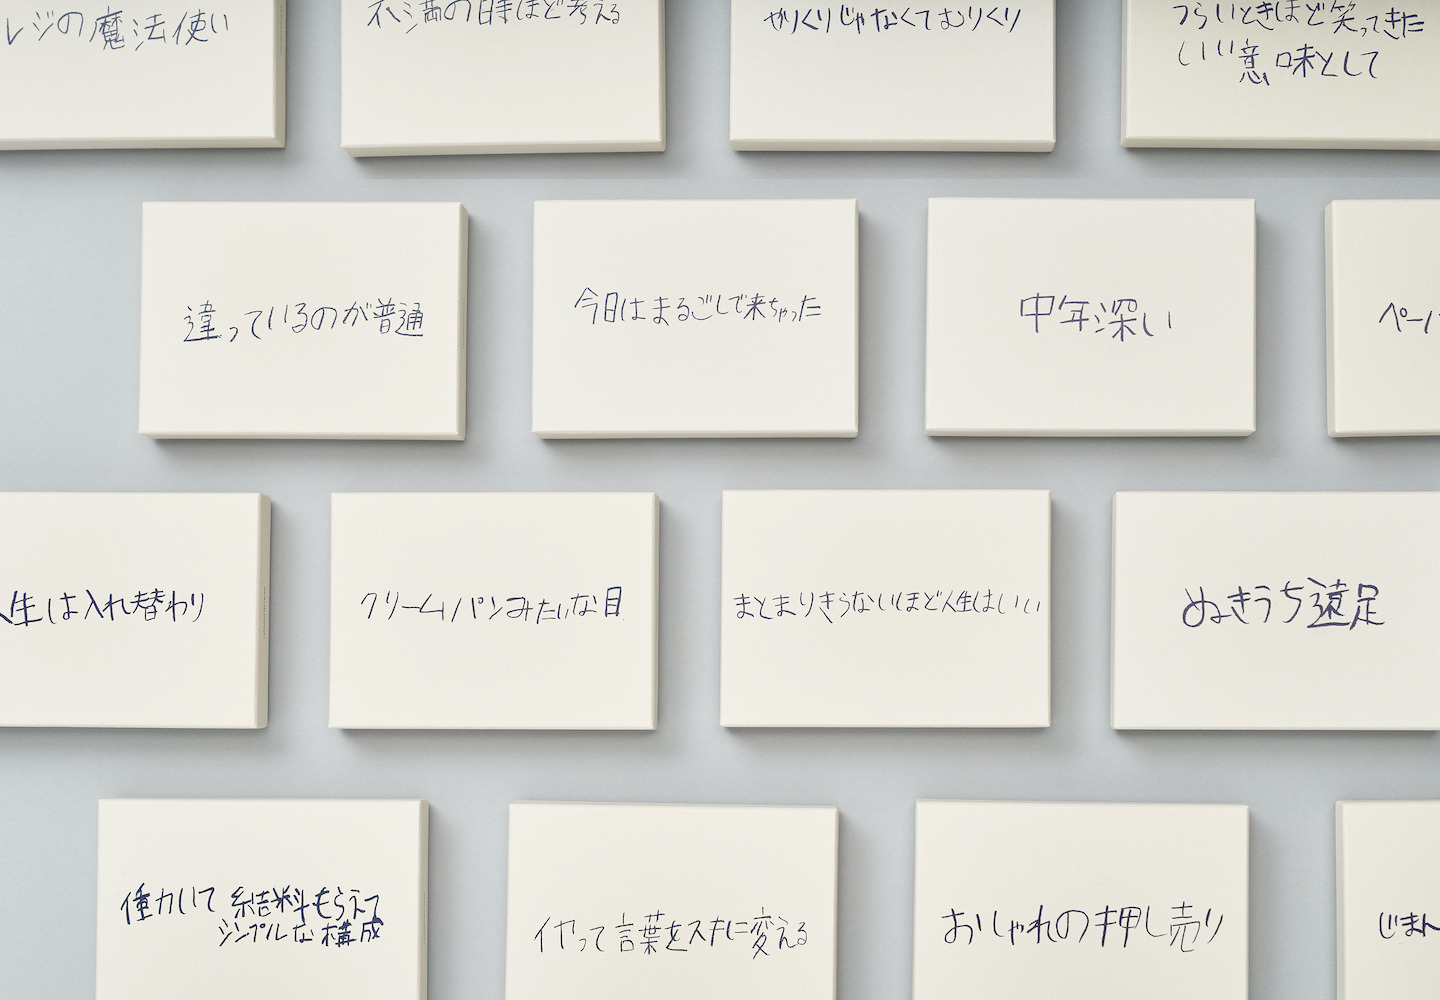 レジの魔法使い
不満の時ほど考える
やりくりじゃなくてむりくり
つらいときほど笑ってきた
いい意味として
違っているのが普通
今日はまるごしで来ちゃった
中年深い
ペーパ
人生は入れ替わり
クリームパンみたいな目
まとまりきらないほど人生はいい
ぬきうち遠足
働いて 給料もらえて
シンプルな構成
イヤって言葉をスキに変える
おしゃれの押し売り
じまん